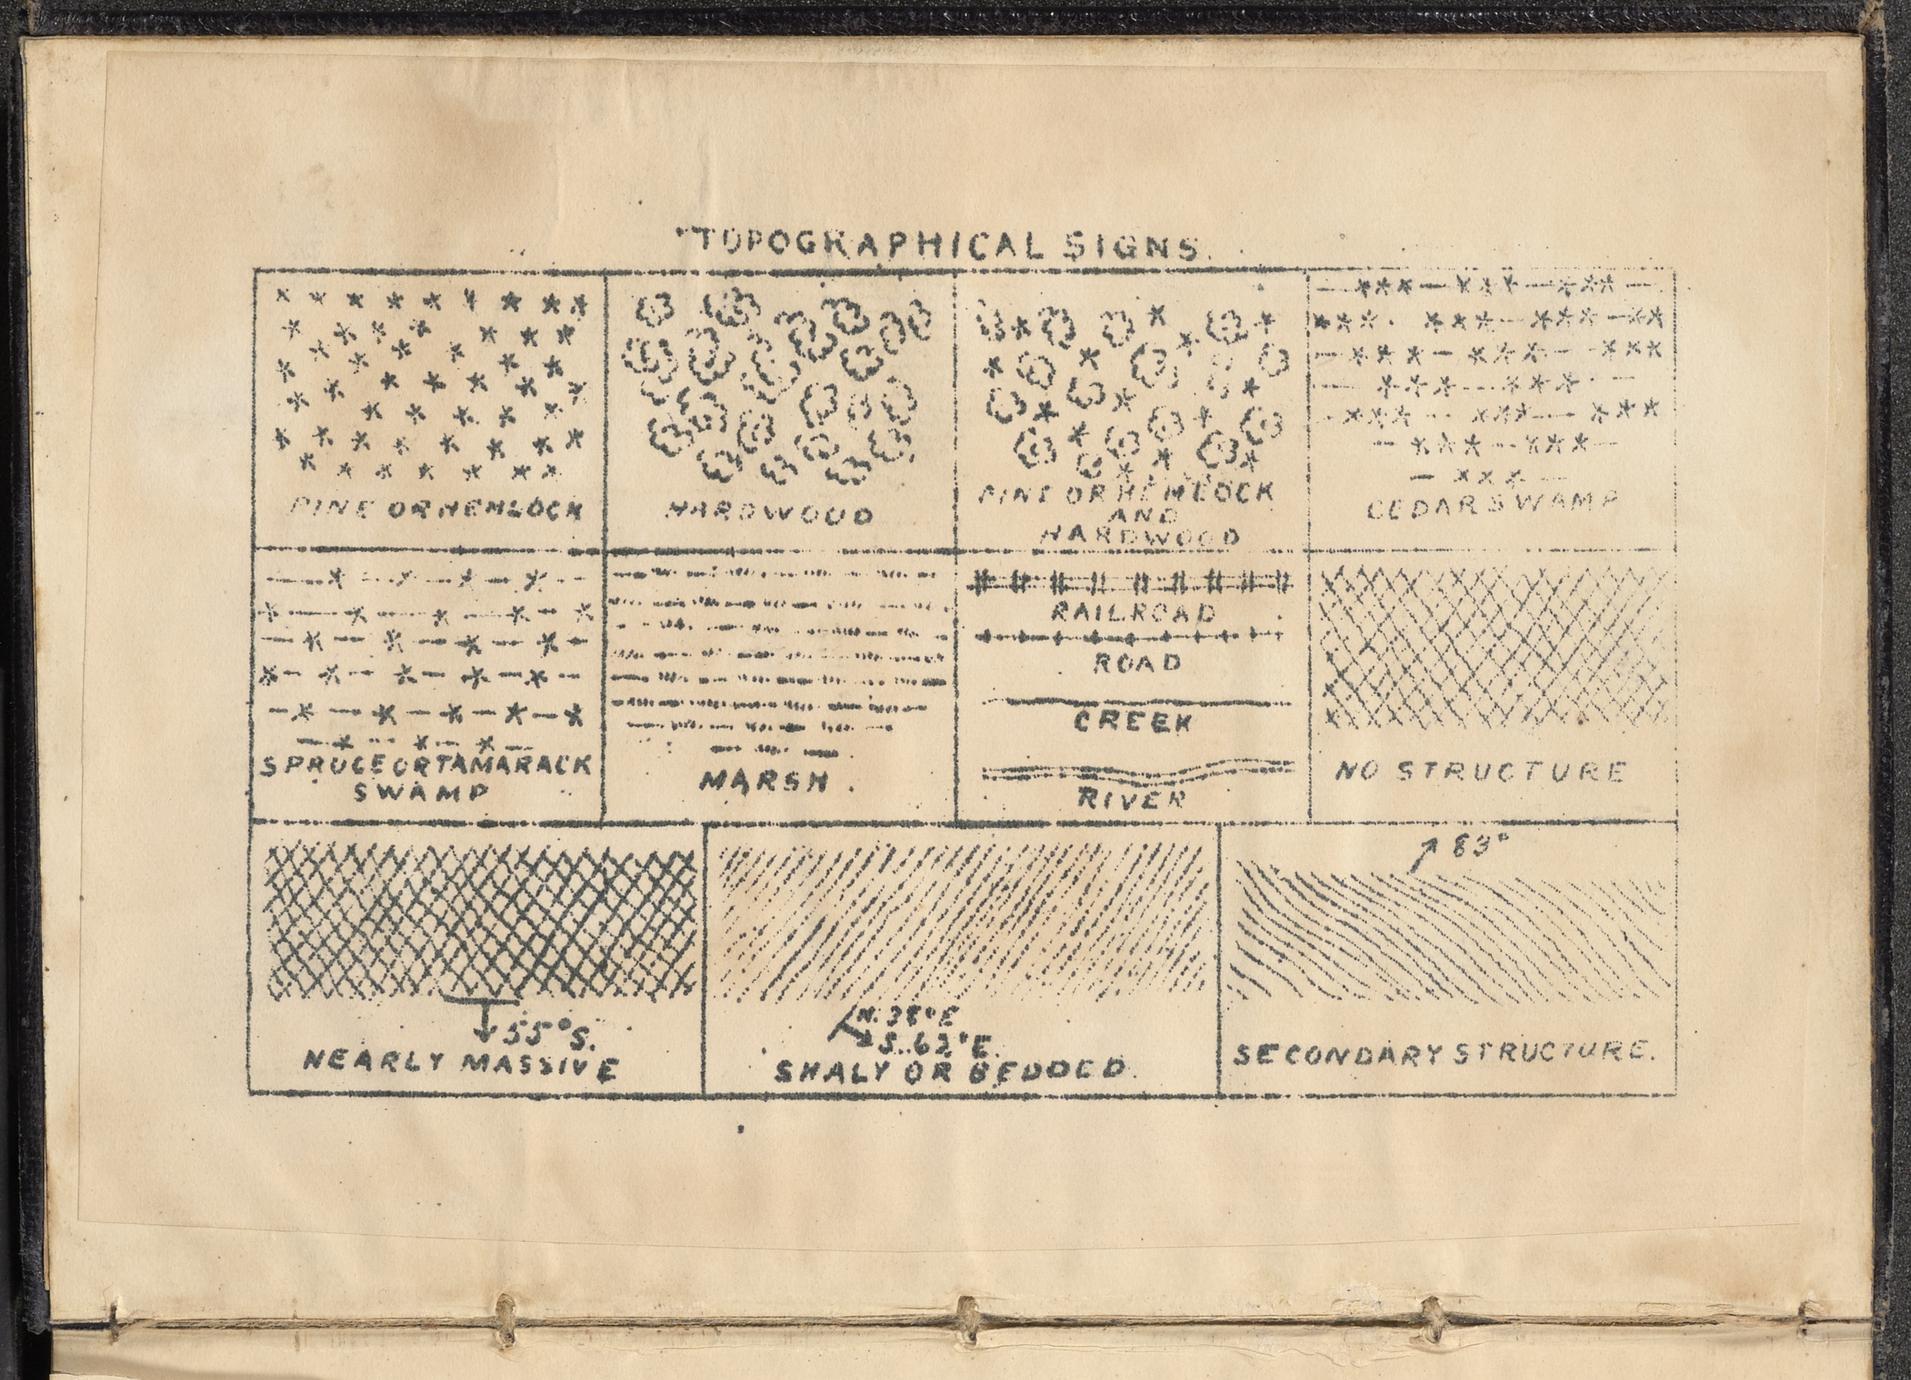 TOPOGRAPHICAL SIGNS.
PINE OR HEMLOCK
HARDWOOD
PINE OR HEMLOCK
AND
HARDWOOD
CEDAR SWAMP
SPRUCE OR TAMARACK
SWAMP
MARSH.
RAILROAD
ROAD
CREEK
RIVER
NO STRUCTURE
55° S.
NEARLY MASSIVE
N. 38° E
S. 62° E.
SHALY OR BEDDED.
83°
SECONDARY STRUCTURE.